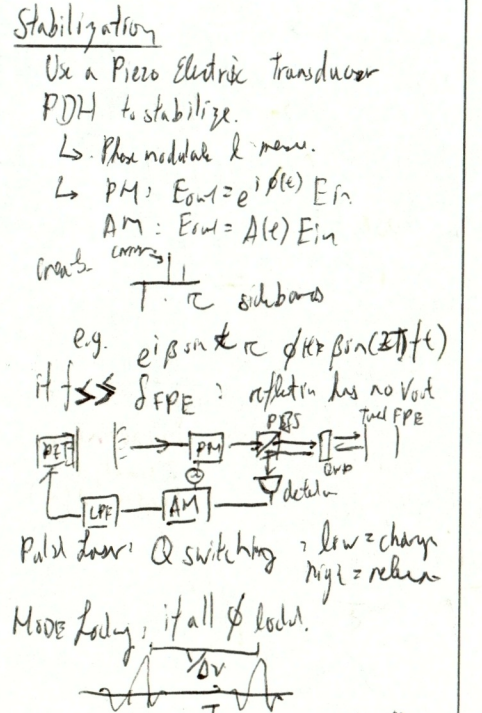 Stabilization
Use a Piezo Electric transducer
PDH to stabilize.
↳ Phase modulate & meas.
↳ PM: Eout = e^iφ(t) Ein
AM: Eout = A(t) Ein
creates
sidebands
e.g. e^iβ sin φ(t) = β sin(2πft)
if f δFPE : reflection has no Vout
PBS FPE
PZT PM QWP
detector
LPF AM
Pulsed Laser: Q switching : low = charge
high = release
MODE Locking: if all φ locked.
1/Δν
T